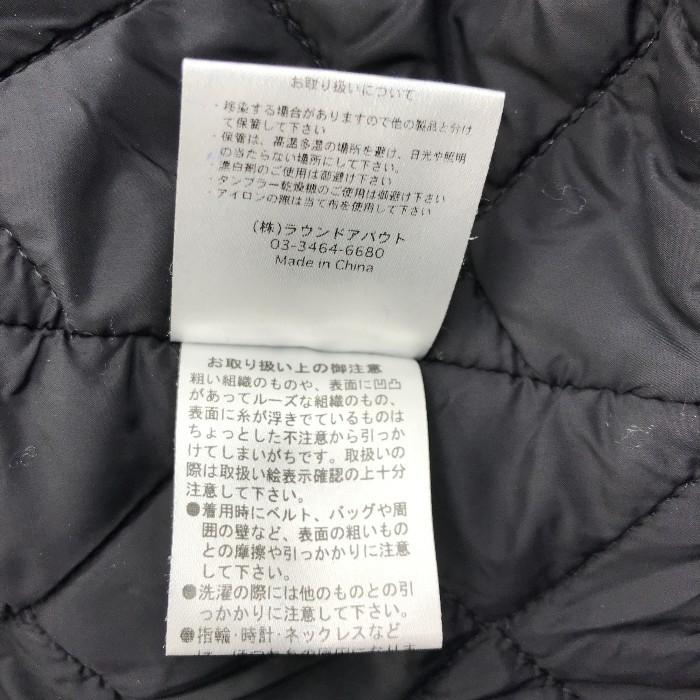 お取り扱いについて
・移染する場合がありますので他の製品と分け
て保管して下さい
・保管は、高温多湿の場所を避け、日光や照明
の当たらない場所にして下さい。
・漂白剤のご使用は御避け下さい
・タンブラー乾燥機のご使用は御避け下さい
・アイロンの際は当て布を使用して下さい
(株)ラウンドアバウト
03-3464-6680
Made in China
お取り扱い上の御注意
粗い組織のものや、表面に凹凸
があってルーズな組織のもの、
表面に糸が浮きでているものは
ちょっとした不注意から引っか
けてしまいがちです。取扱いの
際は取扱い絵表示確認の上十分
注意して下さい。
●着用時にベルト、バッグや周
囲の壁など、表面の粗いもの
との摩擦や引っかかりに注意
して下さい。
●洗濯の際には他のものとの引
っかかりに注意して下さい。
●指輪・時計・ネックレスなど